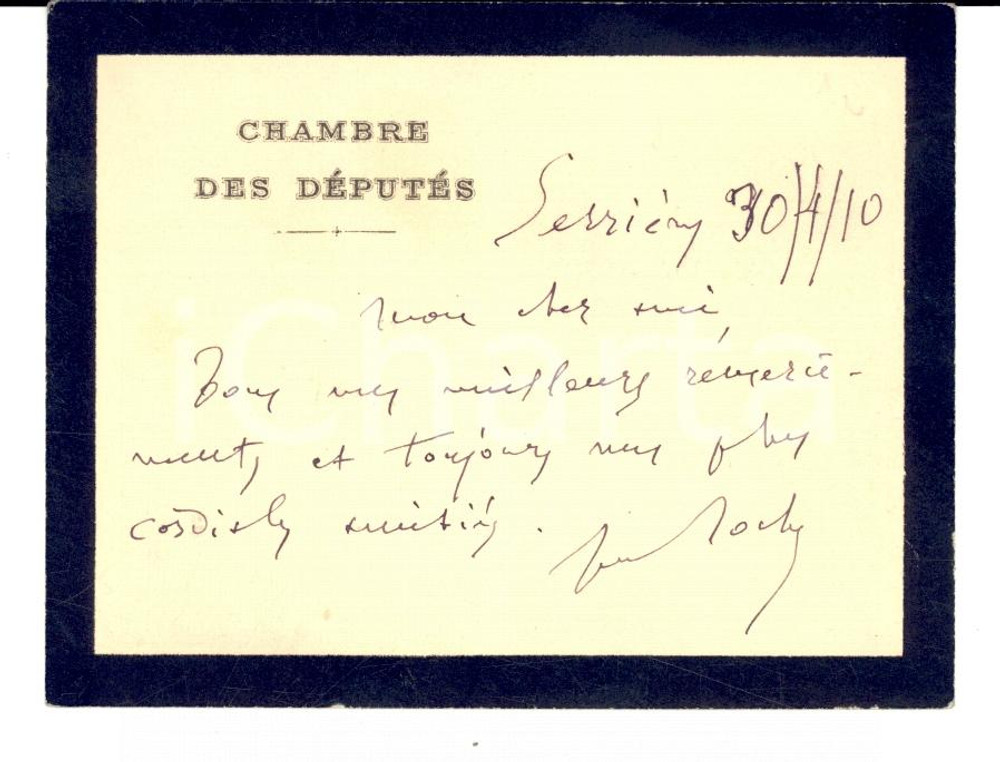 CHAMBRE
DES DÉPUTÉS
Serrières 30/4/10
Mon cher ami,
Tous mes meilleurs remercie-
ments et toujours mes plus
cordiales amitiés.
Jules Roche
iCharta